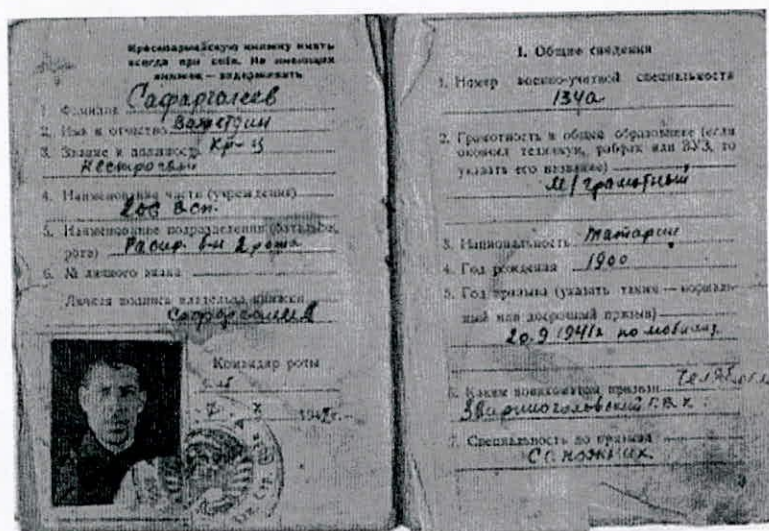 Красноармейскую книжку иметь
всегда при себе. Не имеющих
книжек — задерживать
1. Фамилия Сафаргалеев
2. Имя и отчество
3. Звание и должность Кр-ц
Нестроевой
4. Наименование части (учреждения)
5. Наименование подразделения (батальон,
рота) 2 рота
6. № личного знака
Личная подпись владельца книжки
Сафаргалеев
Командир роты
I. Общие сведения
1. Номер военно-учетной специальности
134а
2. Грамотность и общее образование (если
окончил техникум, рабфак или ВУЗ, то
указать его название)
М/грамотный
3. Национальность татарин
4. Год рождения 1900
5. Год призыва (указать также — нормаль-
ный или досрочный призыв)
20.9 1941г по мобилиз.
6. Каким военкоматом призван
Звериноголовский Р.В.К.
7. Специальность до призыва
Сапожник